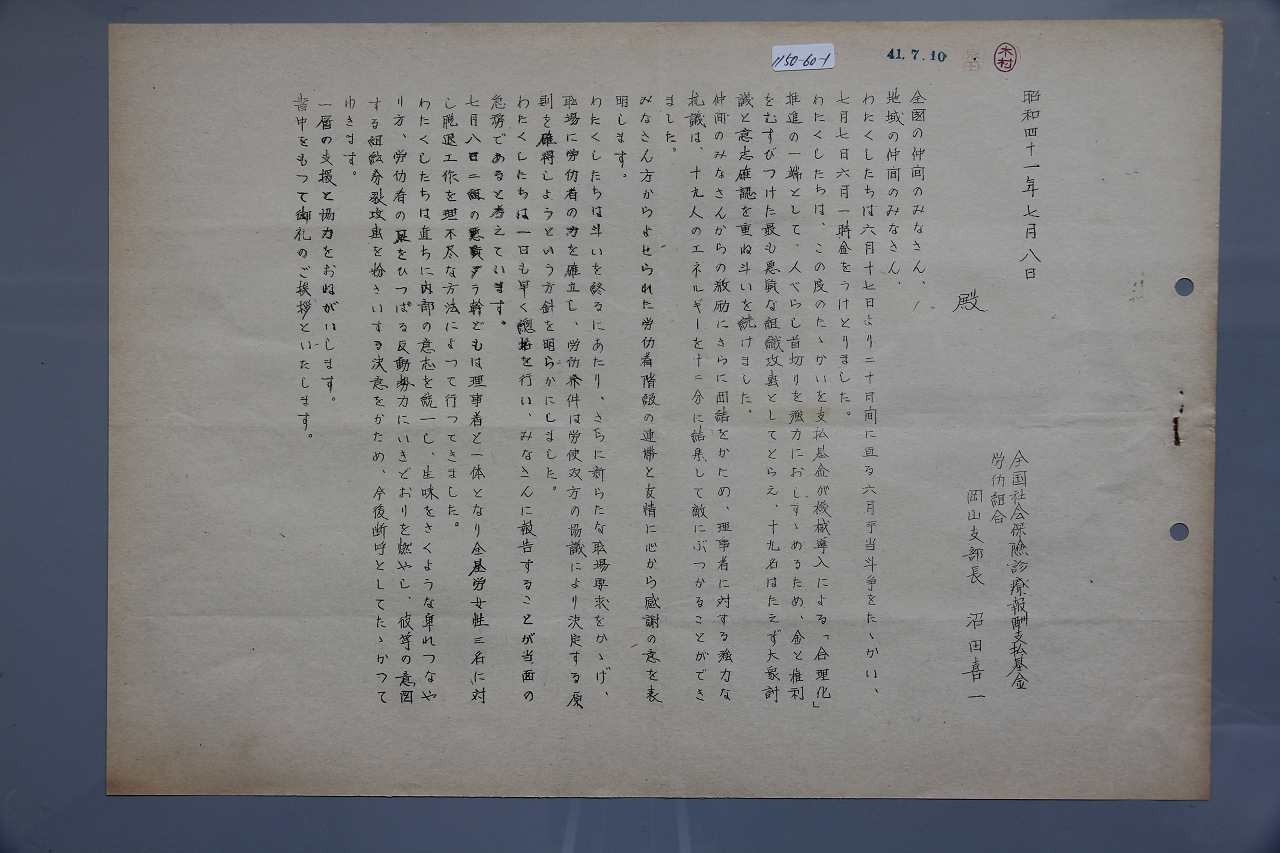 1150-60-1
41.7.10
木村
昭和四十一年七月八日
全国社会保険診療報酬支払基金
労仂組合
岡山支部長　沼田喜一
殿
全国の仲間のみなさん、
地域の仲間のみなさん、
わたくしたちは六月十七日より二十日間に亘る六月手当斗争をたゝかい、
七月七日六月一時金をうけとりました。
わたくしたちは、この度のたゝかいを支払基金が機械導入による「合理化」
推進の一端として、人べらし首切りを強力におしすゝめるため、金と権利
をむすびつけた最も悪質な組織攻撃としてとらえ、十九名はたえず大衆討
議と意志確認を重ね斗いを続けました。
仲間のみなさんからの激励にさらに団結をかため、理事者に対する強力な
抗議は、十九人のエネルギーを十二分に結集して敵にぶつかることができ
ました。
みなさん方からよせられた労仂者階級の連帯と友情に心から感謝の意を表
明します。
わたくしたちは斗いを終るにあたり、さらに新らたな職場要求をかゝげ、
職場に労仂者の力を確立し、労仂条件は労使双方の協議により決定する原
則を確得しようという方針を明らかにしました。
わたくしたちは一日も早く総括を行い、みなさんに報告することが当面の
急務であると考えています。
七月八日二組の悪質ダラ幹どもは理事者と一体となり全基労女性三名に対
し脱退工作を理不尽な方法によって行ってきました。
わたくしたちは直ちに内部の意志を統一し、生味をさくような卑れつなや
り方、労仂者の足をひっぱる反動勢力にいきどおりを燃やし、彼等の意図
する組織分裂攻撃を粉さいする決意をかため、今後断呼としてたゝかって
ゆきます。
一層の支援と協力をおねがいします。
書中をもって御礼のご挨拶といたします。